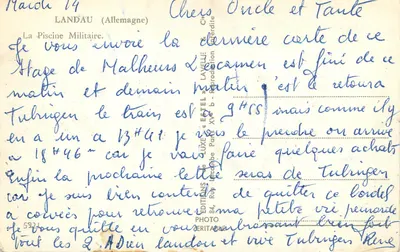 Mardi 14
LANDAU (Allemagne)
La Piscine Militaire.
Chers Oncle et Tante
Je vous envoie la dernière carte de ce
stage de Malheurs L'examen est fini de ce
matin et demain matin c'est le retour a
Tubingen le train est a 9H55 mais comme il y
en a un a 13H41 je vais le prendre on arrive
a 18H46 car je vais faire quelques achats
Enfin la prochaine lettre seras de Tubingen
car je suis bien content de quitter ce bordel
a conviés pour retrouver ma petite vie
je vous quitte en vous embrassant bien fort
tous les 2 ADieu landau et vive Tubingen René
PHOTO
VERITABLE